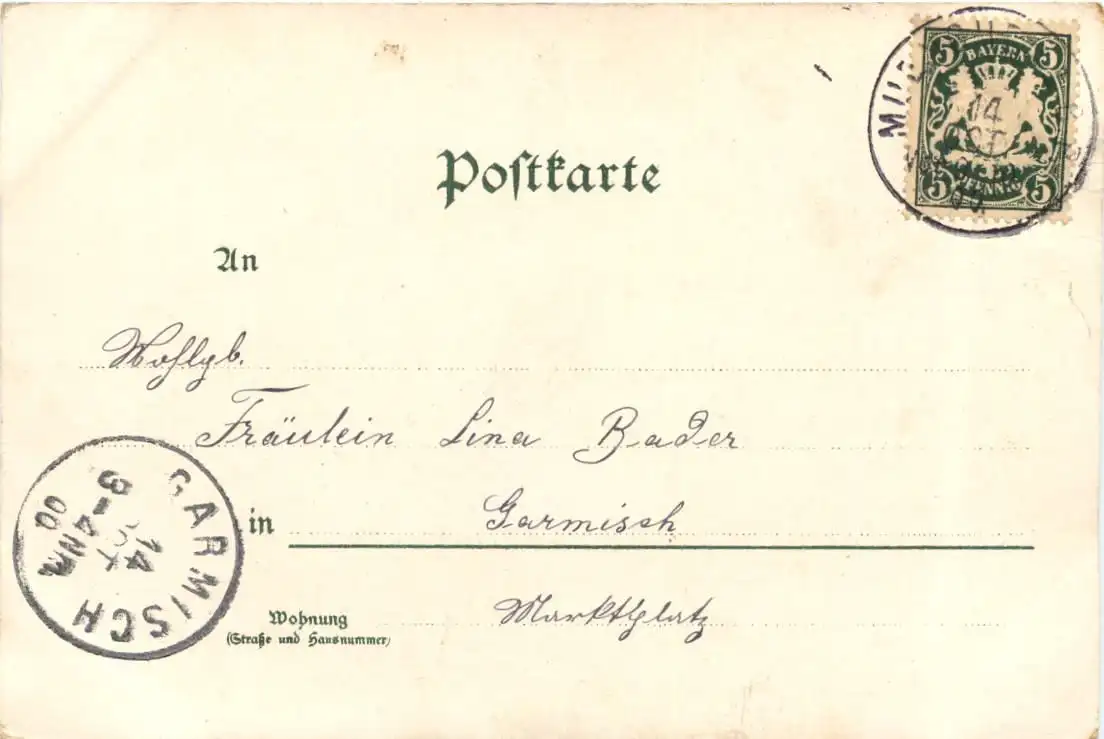 5 BAYERN 5
14
OCT
00
5 PFENNIG 5
Postkarte
An
Wohlgb.
Fräulein Lina Bader
in Garmisch
Wohnung Marktplatz
(Straße und Hausnummer)
GARMISCH
14
OCT
3-4NM
00